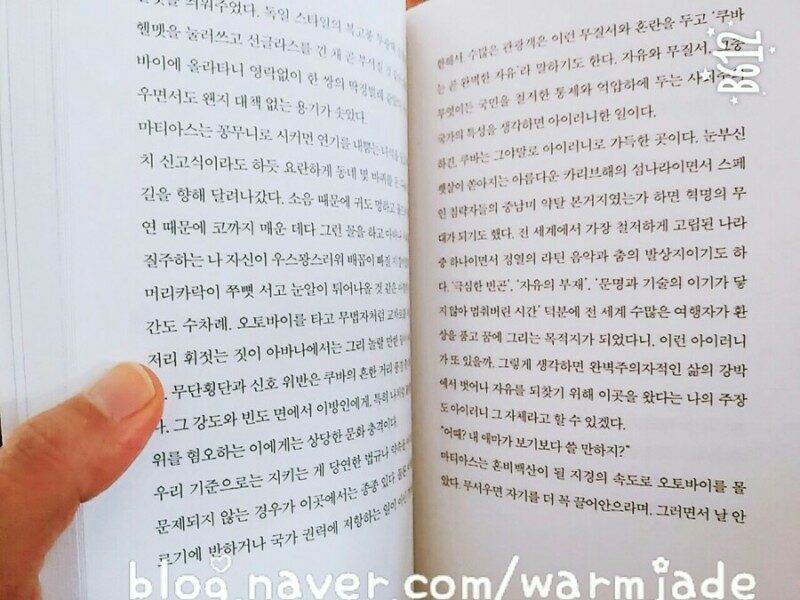 씌워주었다. 독일 스타일의 복고풍
헬멧을 눌러쓰고 선글라스를 낀 채 곧 부서질 것
바이에 올라타니 영락없이 한 쌍의 딱정벌레
우면서도 왠지 대책 없는 용기가 솟았다.
마티아스는 꽁무니로 시커먼 연기를 내뿜는
치 신고식이라도 하듯 요란하게 동네 몇 바퀴를
길을 향해 달려나갔다. 소음 때문에 귀도 멍하고
연 때문에 코까지 매운 데다 그런 몰을 하고 아바나
질주하는 나 자신이 우스꽝스러워 배꼽이 빠질
머리카락이 쭈뼛 서고 눈알이 튀어나올 것 같은
간도 수차례. 오토바이를 타고 무법자처럼
저리 휘젓는 짓이 아바나에서는 그리 놀랄 만한
무단횡단과 신호 위반은 쿠바의 흔한 거리 풍경
다. 그 강도와 빈도 면에서 이방인에게, 특히
위를 혐오하는 이에게는 상당한 문화 충격이다.
우리 기준으로는 지키는 게 당연한 법규나
문제되지 않는 경우가 이곳에서는 종종 있다.
르기에 반하거나 국가 권력에 저항하는 일이
한해서. 수많은 관광객은 이런 무질서와 혼란을 두고 '쿠바
는 곧 완벽한 자유'라 말하기도 한다. 자유와 무질서, 그중
무엇이든 국민을 철저한 통제와 억압하에 두는
국가의 특성을 생각하면 아이러니한 일이다.
하긴, 쿠바는 그야말로 아이러니로 가득한 곳이다. 눈부신
햇살이 쏟아지는 아름다운 카리브해의 섬나라이면서 스페
인 침략자들의 중남미 약탈 본거지였는가 하면 혁명의 무
대가 되기도 했다. 전 세계에서 가장 철저하게 고립된 나라
중 하나이면서 정열의 라틴 음악과 춤의 발상지이기도 하
다. '극심한 빈곤', '자유의 부재', '문명과 기술의 이기가 닿
지 않아 멈춰버린 시간' 덕분에 전 세계 수많은 여행자가 환
상을 품고 꿈에 그리는 목적지가 되었다니, 이런 아이러니
가 또 있을까. 그렇게 생각하면 완벽주의자적인 삶의 강박
에서 벗어나 자유를 되찾기 위해 이곳을 왔다는 나의 주장
도 아이러니 그 자체라고 할 수 있겠다.
"어때? 내 애마가 보기보다 쓸 만하지?"
마티아스는 혼비백산이 될 지경의 속도로 오토바이를 몰
았다. 무서우면 자기를 더 꼭 끌어안으라며. 그러면서 날 안
B612
blog.naver.com/warmjade